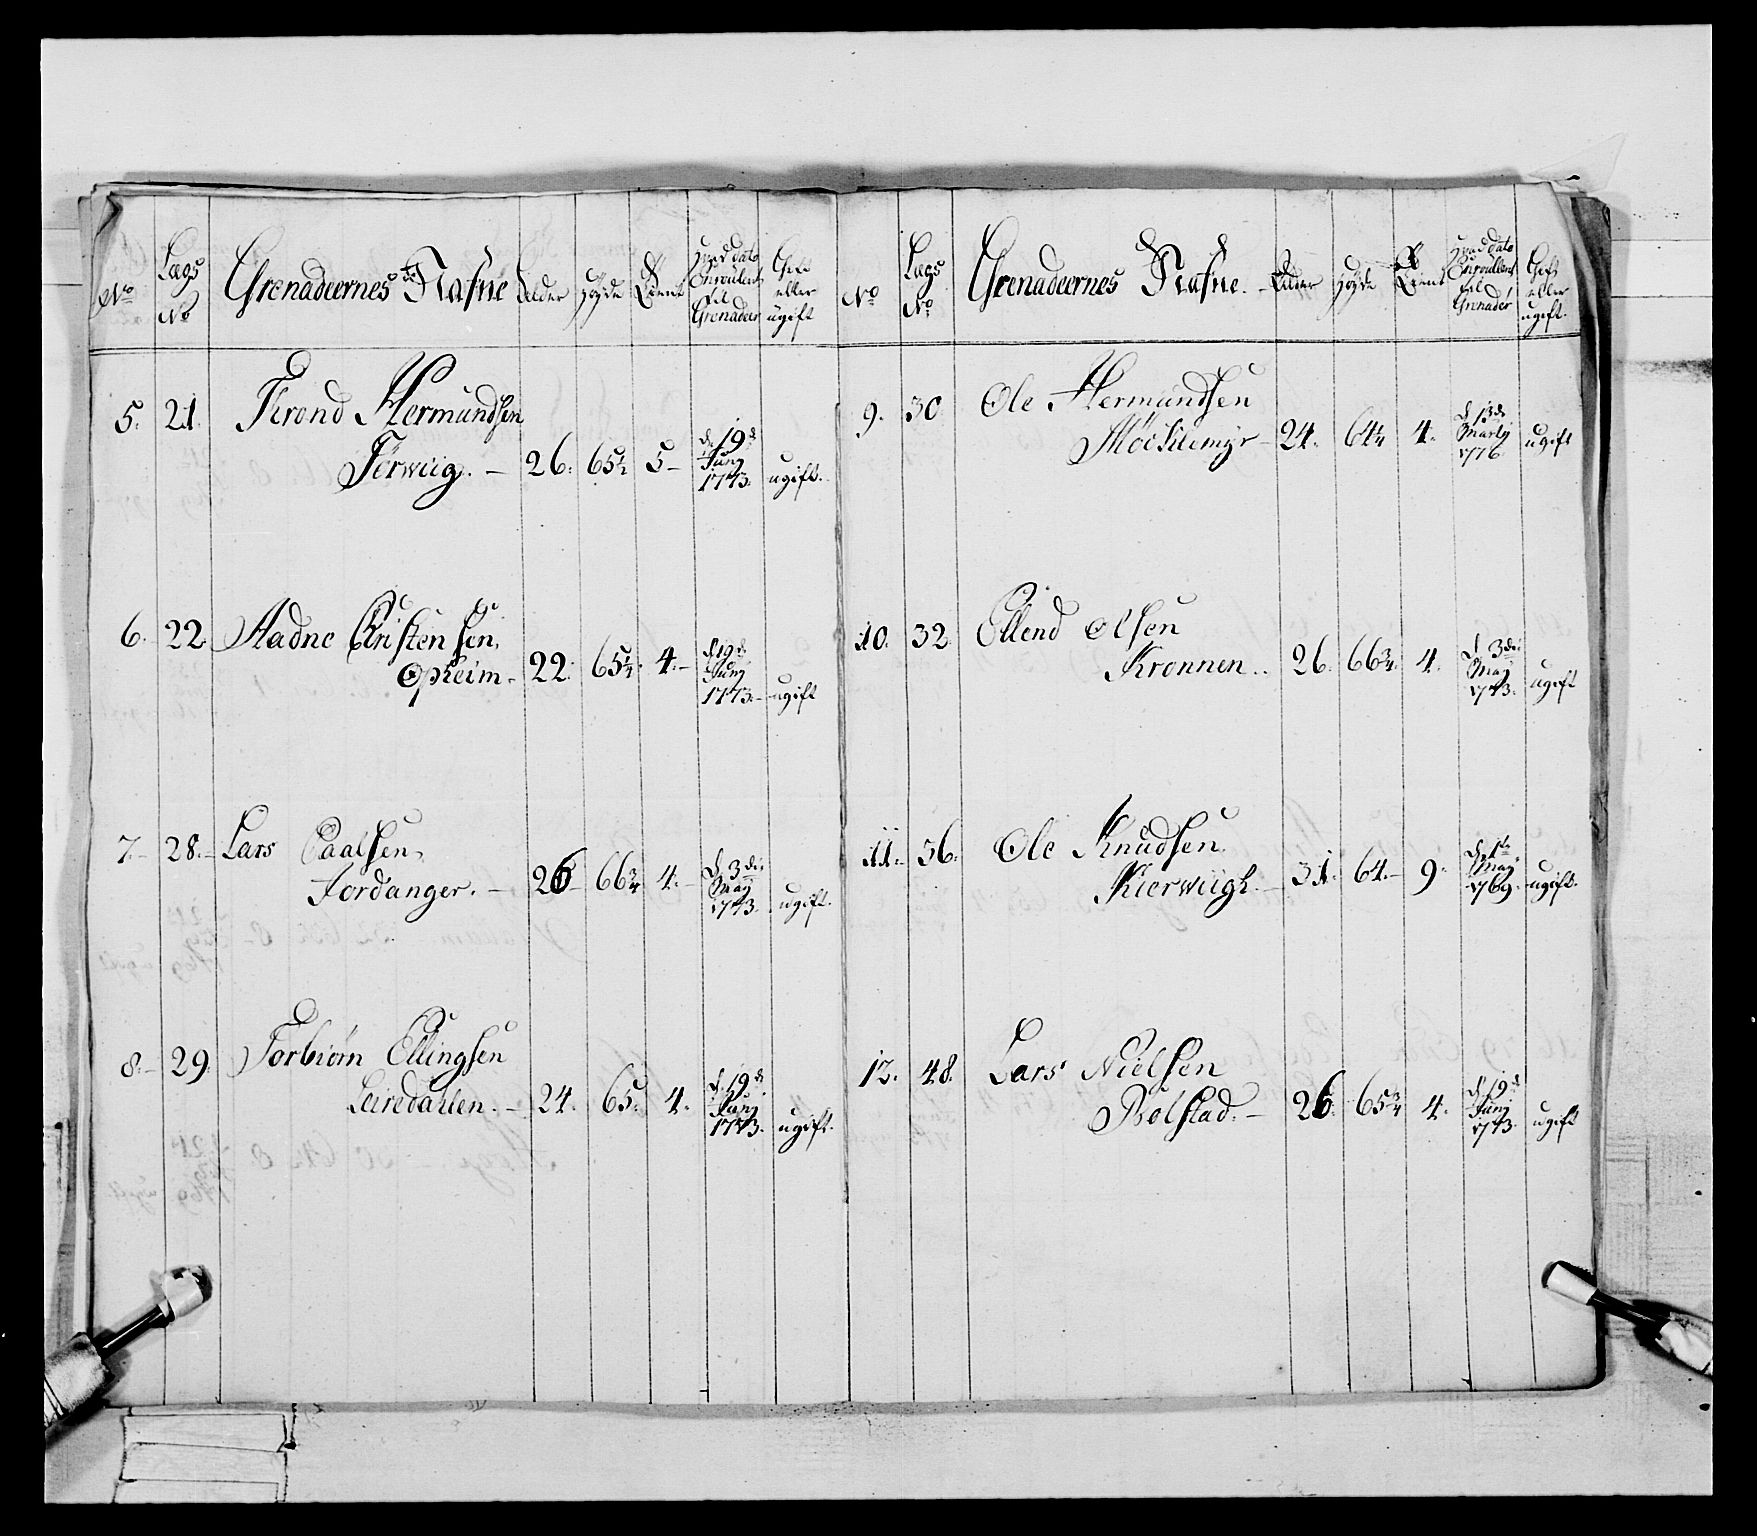 No
Lægs No
Grenadeernes Nafne
alder
høyde
Tient
hvad dato Enroulent til Grenadeer
Gift eller ugift
5. 21. Trond Hermundsen
Førwiig. — 26. 65½ 5 — d. 19d Junj 1773. ugift.
6. 22 Aadne Christensen,
Opheim. 22. 65¼ 4. — d 19d Junj 1773. — ugift
7. — 28. — Lars Paalsen,
Jordanger. — 26 66¾ 4. — d. 3die May 1773. ugift.
8. — 29. Torbiørn Ellingsen
Leiredahlen. — 24. 65. 4. d. 19d. Junj 1773. ugift.
No
Lægs No
Grenadeernes Nafne.
alder
høyde
Tient
hvad dato Enroulent til Grenader
Gift eller ugift.
9. 30 Ole Hermundsen
Mochlemyr — 24. 64¼ 4. d. 13de Martij 1776 ugift
10. 32. Ellend Olsen
Kronnen. . 26. 66¾. 4. d. 3die May 1773. ugift
11. 36. Ole Knudsen.
Kierwiigh. — 31. 64. — 9. d. 1te May 1769. ugift.
12. 48. Lars Nielsen
Bolstad. — 26. 65¾ 4. d. 19d. Junj 1773. ugift